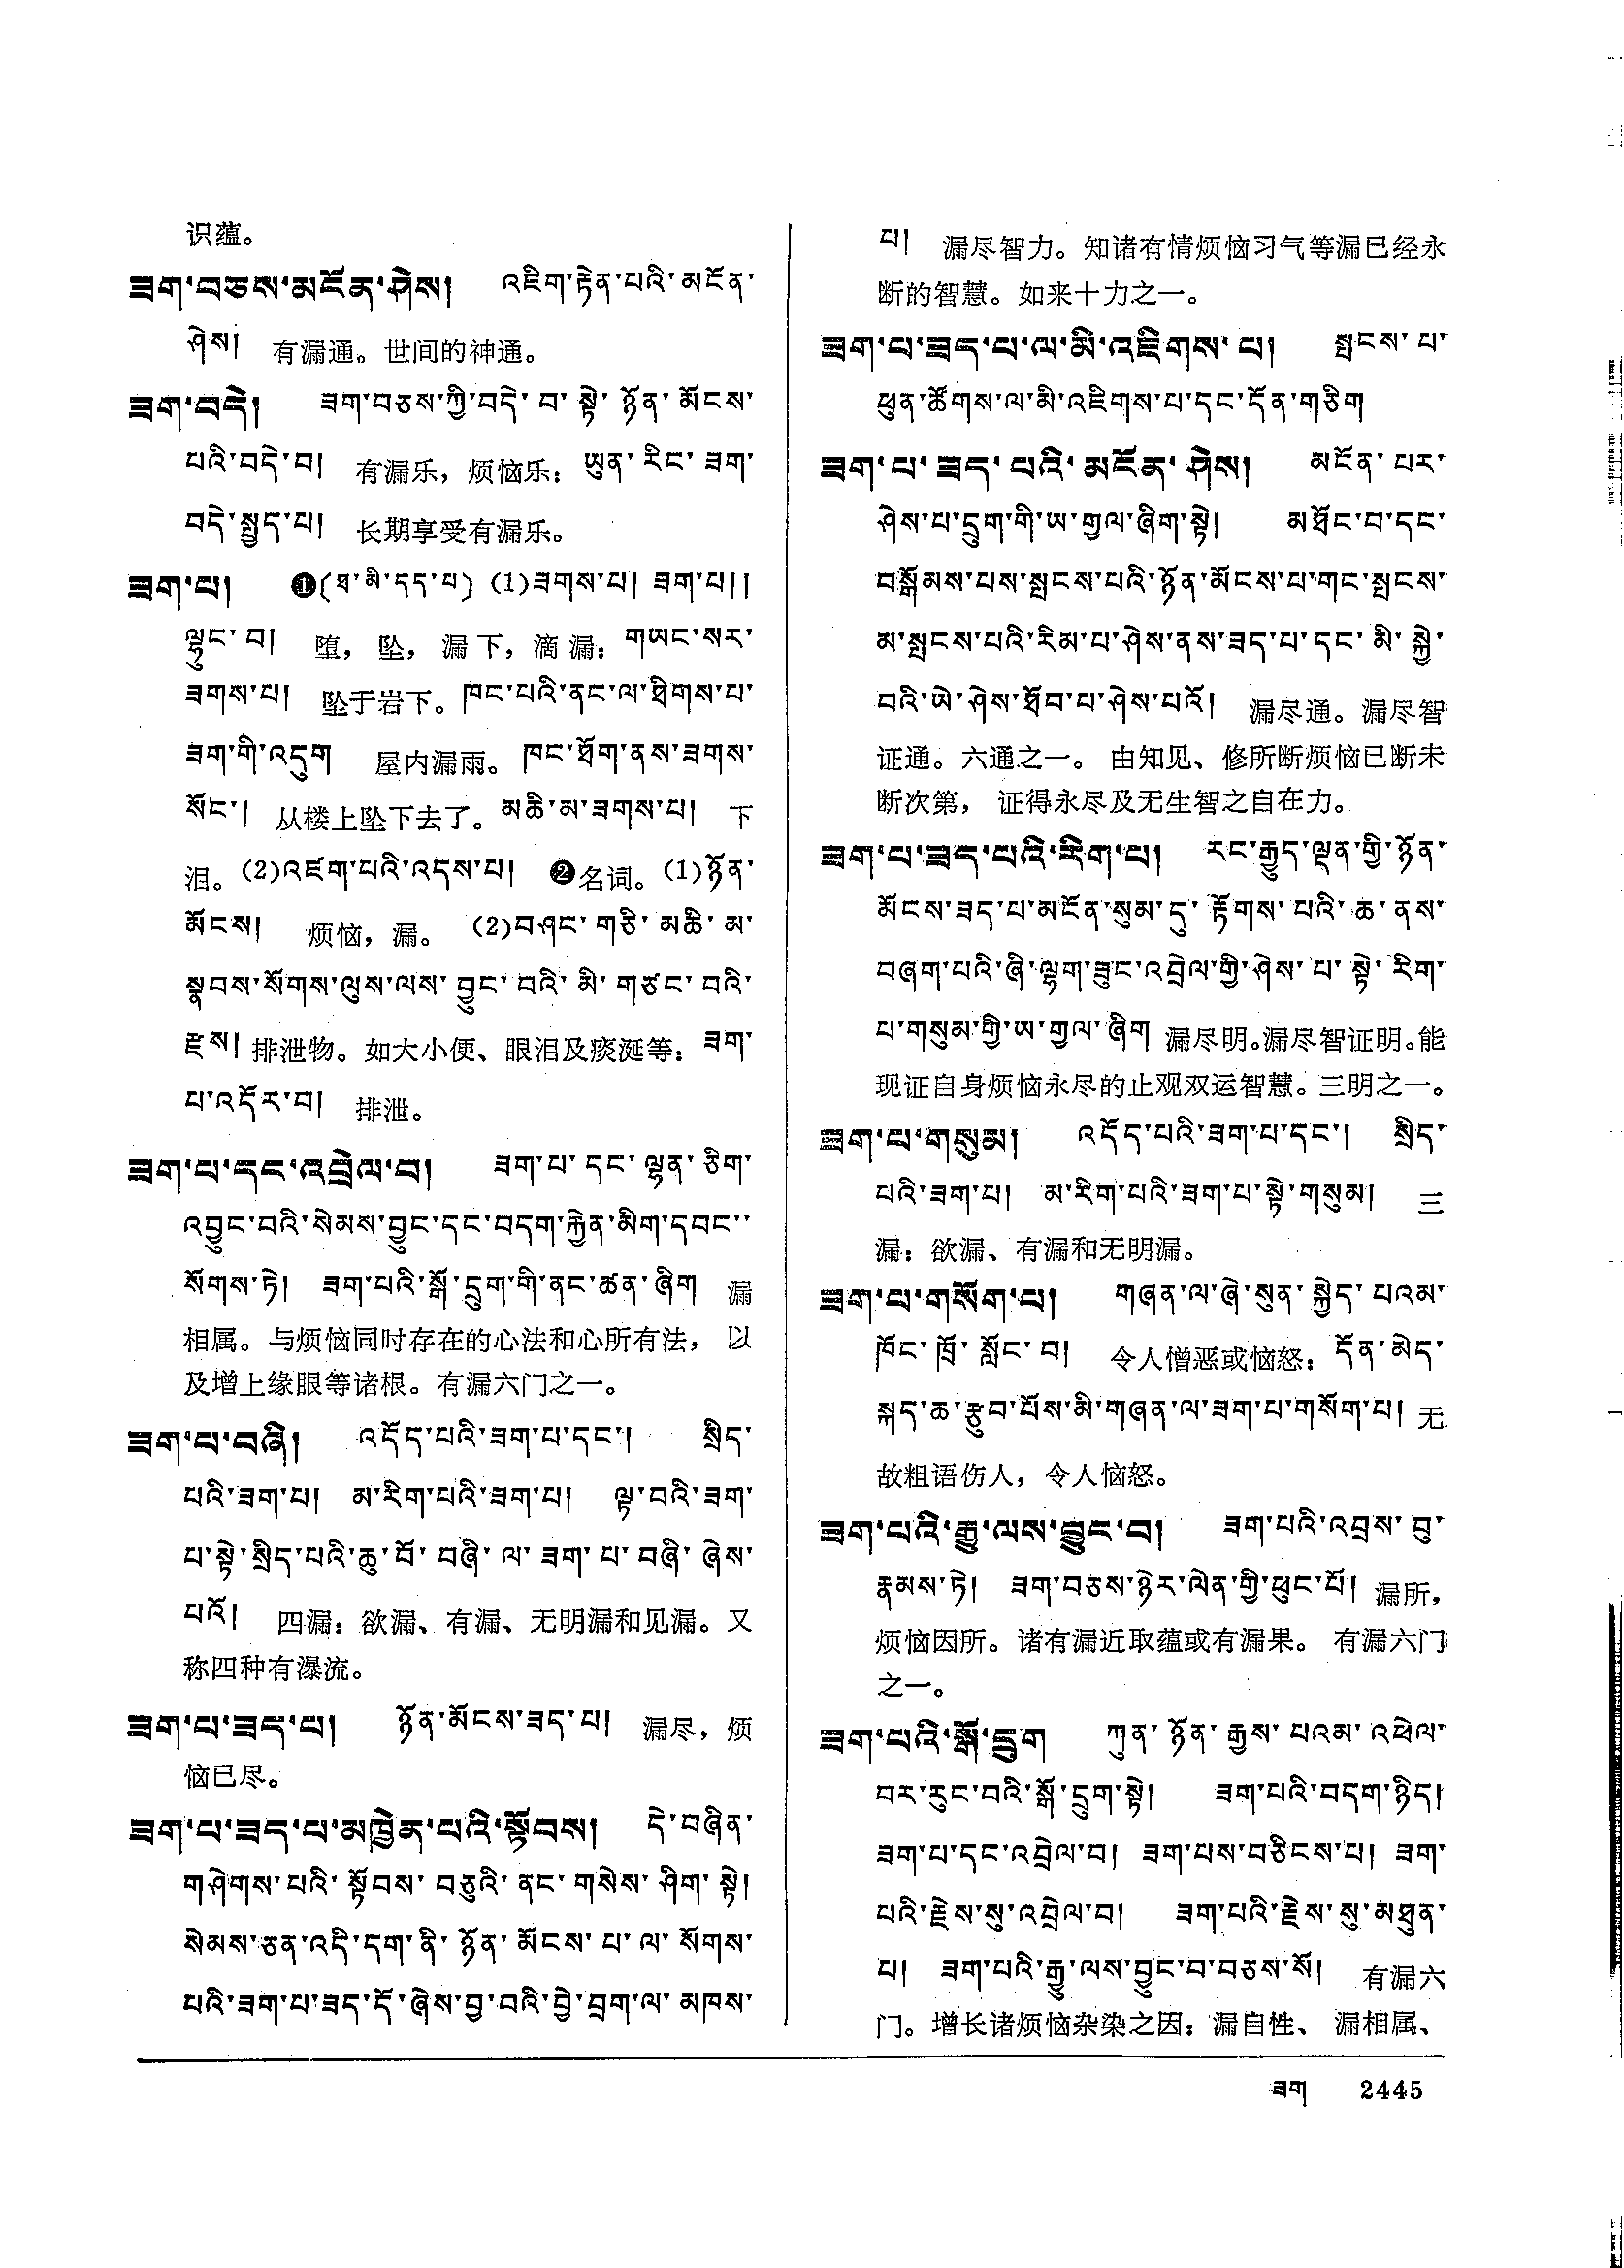 识蕴。
ཟག་བཅས་མངོན་ཤེས། འཇིག་རྟེན་པའི་མངོན་
ཤེས། 有漏通。世间的神通。
ཟག་བདེ། ཟག་བཅས་ཀྱི་བདེ་བ་སྟེ་ཉོན་མོངས་
པའི་བདེ་བ། 有漏乐，烦恼乐：ཡུན་རིང་ཟག་
བདེ་སྤྱད་པ། 长期享受有漏乐。
ཟག་པ། ❶(ཐ་མི་དད་པ) (1)ཟགས་པ། ཟག་པ།།
ལྷུང་བ། 堕，坠，漏下，滴漏：གཡང་སར་
ཟགས་པ། 坠于岩下。ཁང་པའི་ནང་ལ་ཐིགས་པ་
ཟག་གི་འདུག 屋内漏雨。ཁང་ཐོག་ནས་ཟགས་
སོང་། 从楼上坠下去了。མཆི་མ་ཟགས་པ། 下
泪。(2)འཛག་པའི་འདས་པ། ❷名词。(1)ཉོན་
མོངས། 烦恼，漏。 (2)བཤང་གཅི་མཆི་མ་
སྣབས་སོགས་ལུས་ལས་བྱུང་བའི་མི་གཙང་བའི་
རྫས། 排泄物。如大小便、眼泪及痰涎等：ཟག་
པ་འདོར་བ། 排泄。
ཟག་པ་དང་འབྲེལ་བ། ཟག་པ་དང་ལྷན་ཅིག་
འབྱུང་བའི་སེམས་བྱུང་དང་བདག་རྐྱེན་མིག་དབང་་
སོགས་ཏེ། ཟག་པའི་སྒོ་དྲུག་གི་ནང་ཚན་ཞིག 漏
相属。与烦恼同时存在的心法和心所有法， 以
及增上缘眼等诸根。有漏六门之一。
ཟག་པ་བཞི། འདོད་པའི་ཟག་པ་དང་། སྲིད་
པའི་ཟག་པ། མ་རིག་པའི་ཟག་པ། ལྟ་བའི་ཟག་
པ་སྟེ་སྲིད་པའི་ཆུ་བོ་བཞི་ལ་ཟག་པ་བཞི་ཞེས་
པའོ། 四漏：欲漏、有漏、无明漏和见漏。又
称四种有瀑流。
ཟག་པ་ཟད་པ། ཉོན་མོངས་ཟད་པ། 漏尽，烦
恼已尽。
ཟག་པ་ཟད་པ་མཁྱེན་པའི་སྟོབས། དེ་བཞིན་
གཤེགས་པའི་སྟོབས་བཅུའི་ནང་གསེས་ཤིག་སྟེ།
སེམས་ཅན་འདི་དག་ནི་ཉོན་མོངས་པ་ལ་སོགས་
པའི་ཟག་པ་ཟད་དོ་ཞེས་བྱ་བའི་བྱེ་བྲག་ལ་མཁས་
པ། 漏尽智力。知诸有情烦恼习气等漏已经永
断的智慧。如来十力之一。
ཟག་པ་ཟད་པ་ལ་མི་འཇིགས་པ། སྤངས་པ་
ཕུན་ཚོགས་ལ་མི་འཇིགས་པ་དང་དོན་གཅིག
ཟག་པ་ཟད་པའི་མངོན་ཤེས། མངོན་པར་
ཤེས་པ་དྲུག་གི་ཡ་གྱལ་ཞིག་སྟེ། མཐོང་བ་དང་
བསྒོམས་པས་སྤངས་པའི་ཉོན་མོངས་པ་གང་སྤངས་
མ་སྤངས་པའི་རིམ་པ་ཤེས་ནས་ཟད་པ་དང་མི་སྐྱེ་
བའི་ཡེ་ཤེས་ཐོབ་པ་ཤེས་པའོ། 漏尽通。漏尽智
证通。六通之一。 由知见、修所断烦恼已断未
断次第， 证得永尽及无生智之自在力。
ཟག་པ་ཟད་པའི་རིག་པ། རང་རྒྱུད་ལྡན་གྱི་ཉོན་
མོངས་ཟད་པ་མངོན་སུམ་དུ་རྟོགས་པའི་ཆ་ནས་
བཞག་པའི་ཞི་ལྷག་ཟུང་འབྲེལ་གྱི་ཤེས་པ་སྟེ་རིག་
པ་གསུམ་གྱི་ཡ་གྱལ་ཞིག 漏尽明。漏尽智证明。能
现证自身烦恼永尽的止观双运智慧。三明之一。
ཟག་པ་གསུམ། འདོད་པའི་ཟག་པ་དང་། སྲིད་
པའི་ཟག་པ། མ་རིག་པའི་ཟག་པ་སྟེ་གསུམ། 三
漏：欲漏、有漏和无明漏。
ཟག་པ་གསོག་པ། གཞན་ལ་ཞེ་སུན་སྐྱེད་པའམ་
ཁོང་ཁྲོ་སློང་བ། 令人憎恶或恼怒：དོན་མེད་
སྐད་ཆ་རྩུབ་པོས་མི་གཞན་ལ་ཟག་པ་གསོག་པ། 无
故粗语伤人，令人恼怒。
ཟག་པའི་རྒྱུ་ལས་བྱུང་བ། ཟག་པའི་འབྲས་བུ་
རྣམས་ཏེ། ཟག་བཅས་ཉེར་ལེན་གྱི་ཕུང་པོ། 漏所，
烦恼因所。诸有漏近取蕴或有漏果。 有漏六门
之一。
ཟག་པའི་སྒོ་དྲུག ཀུན་ཉོན་རྒྱས་པའམ་འཕེལ་
བར་རུང་བའི་སྒོ་དྲུག་སྟེ། ཟག་པའི་བདག་ཉིད།
ཟག་པ་དང་འབྲེལ་བ། ཟག་པས་བཅིངས་པ། ཟག་
པའི་རྗེས་སུ་འབྲེལ་བ། ཟག་པའི་རྗེས་སུ་མཐུན་
པ། ཟག་པའི་རྒྱུ་ལས་བྱུང་བ་བཅས་སོ། 有漏六
门。增长诸烦恼杂染之因：漏自性、 漏相属、
ཟག 2445